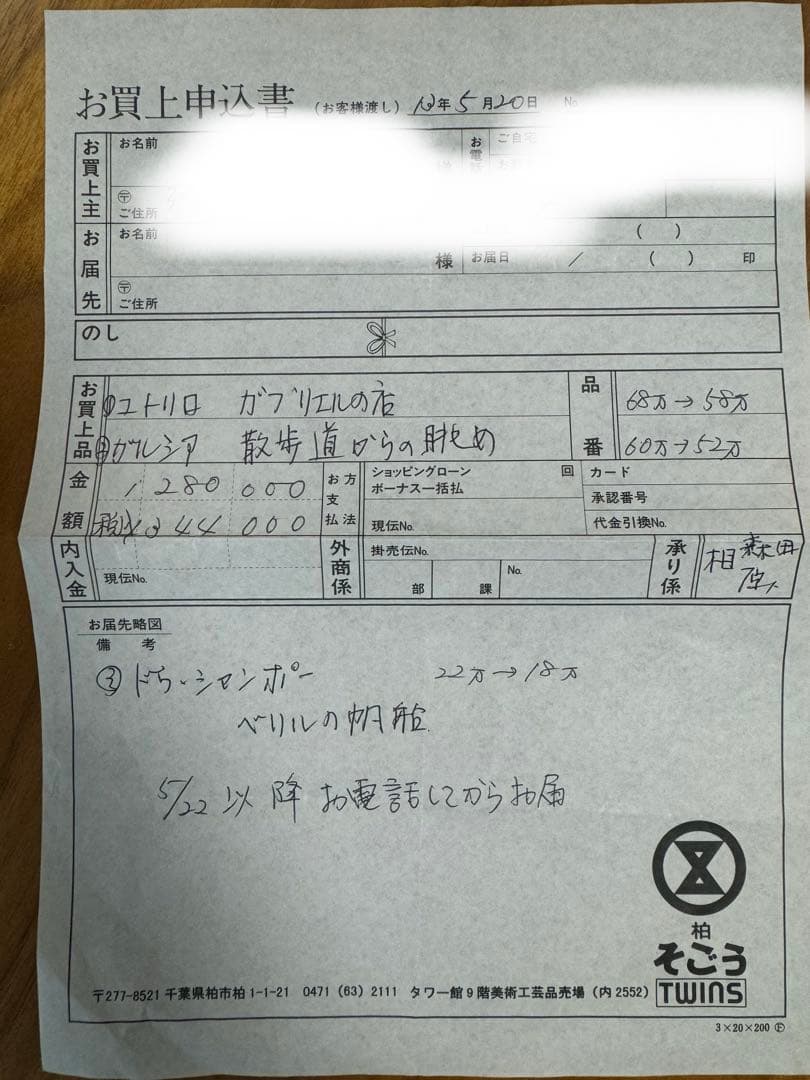 お買上申込書 (お客様渡し) 13年5月20日 No
お買上主
お名前
お電話
ご自宅
〒
ご住所
お届先
お名前
様
( )
お届日 / ( ) 印
〒
ご住所
のし
お買上品
①ユトリロ ガブリエルの店
②ガルシア 散歩道からの眺め
品番
68万→58万
60万→52万
金額
1 280 000
税込 1 344 000
お支払方法
ショッピングローン 回
ボーナス一括払
現伝No.
カード
承認番号
代金引換No.
内入金
現伝No.
外商係
掛売伝No.
部 課 No.
承り係
備考
お届先略図
③ドゥ・シャンポー 22万→18万
ベリルの帆船
5/22 以降 お電話してからお届
柏
そごう
TWINS
〒277-8521 千葉県柏市柏1-1-21 0471 (63) 2111 タワー館9階美術工芸品売場 (内2552)
3×20×200